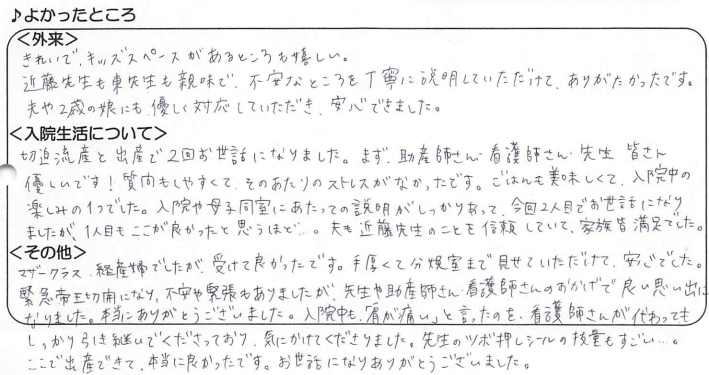 ♪よかったところ
<外来>
きれいで、キッズスペースがあるところも嬉しい。
近藤先生も東先生も親味で、不安なところを丁寧に説明していただけて、ありがたかったです。
夫や2歳の娘にも優しく対応していただき、安心できました。
<入院生活について>
切迫流産と出産で2回お世話になりました。まず、助産師さん・看護師さん・先生 皆さん
優しいです！質問もしやすくて、そのあたりのストレスがなかったです。ごはんも美味しくて、入院中の
楽しみの1つでした。入院や母子同室にあたっての説明がしっかりあって、今回2人目でお世話になり
ましたが、1人目もここが良かったと思うほど…。夫も近藤先生のことを信頼していて、家族皆満足でした。
<その他>
マザークラス、経産婦でしたが、受けて良かったです。手厚くて分娩室まで見せていただけて、安心でした。
緊急帝王切開になり、不安や緊張もありましたが、先生や助産師さん・看護師さんのおかげで良い思い出に
なりました。本当にありがとうございました。入院中も、「肩が痛い」と言ったのを、看護師さんが代わっても
しっかり引き継いでくださっており、気にかけてくださりました。先生のツボ押しシールの技量もすごい…。
ここで出産できて、本当に良かったです。お世話になりありがとうございました。